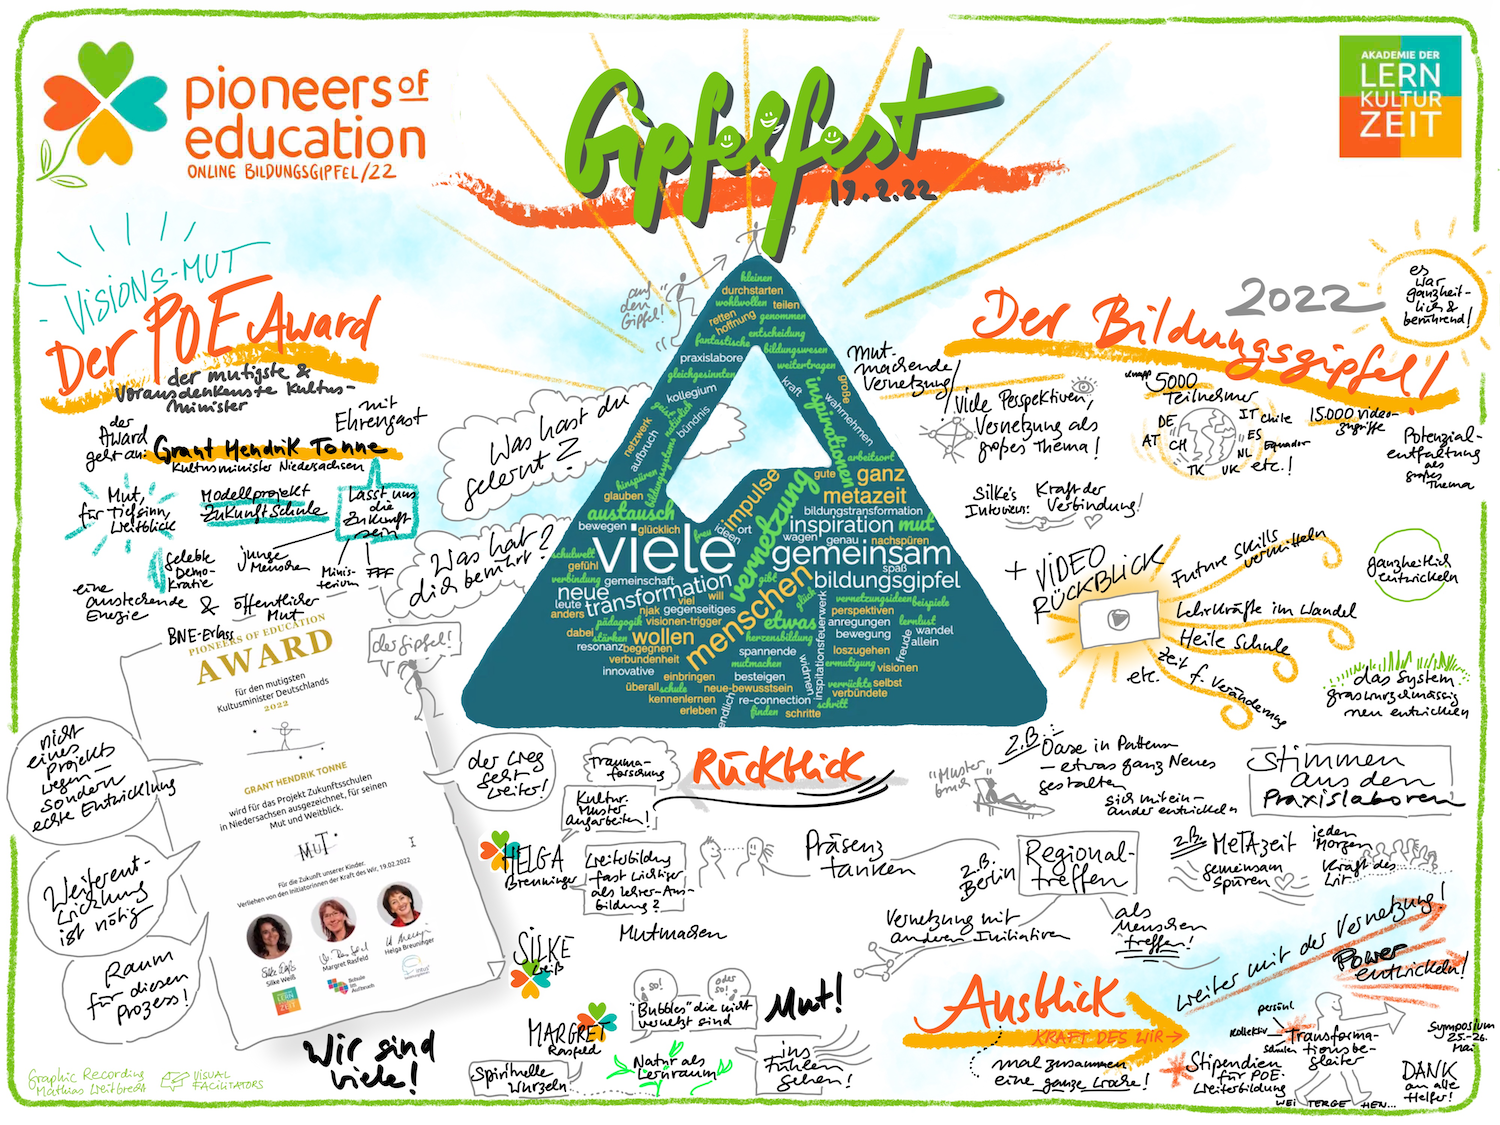 pioneers of
education
ONLINE BILDUNGSGIPFEL/22
Gipfelfest
19.2.22
AKADEMIE DER
LERN
KULTUR
ZEIT
VISIONS-MUT
Der POE Award
der mutigste &
Vorausdenkenste Kultus-
minister
mit
Ehrengast
der
Award
geht an:
Grant Hendrik Tonne
Kultusminister Niedersachsen
Mut,
für Tiefsinn,
Weitblick
Modellprojekt
ZukunftSchule
Lasst uns
die
Zukunft
sein
Gelebte
Demo-
kratie
junge
Menschen
Minis-
terium
eine
ansteckende
Energie
&
öffentlicher
Mut
BNE-Erlass
PIONEERS OF EDUCATION
AWARD
für den mutigsten
Kultusminister Deutschlands
2022
GRANT HENDRIK TONNE
wird für das Projekt Zukunftsschulen
in Niedersachsen ausgezeichnet, für seinen
Mut und Weitblick.
MUT
Für die Zukunft unserer Kinder.
Verliehen von den Initiatorinnen der Kraft des Wir, 19.02.2022
Silke Weiß
Margret Rasfeld
Helga Breuninger
AKADEMIE DER
LERN
KULTUR
ZEIT
Schule
im
Aufbruch
nicht
eines
Projekts
wegen –
sondern
echte Entwicklung
Weiterent-
wicklung
ist nötig
Raum
für diesen
Prozess!
Wir sind
viele!
Graphic Recording
Mathias Weitbrecht
VISUAL
FACILITATORS
auf
den
Gipfel!
Was hast du
gelernt?
Was hat
dich berührt?
des Gipfel!
der Weg
geht
weiter!
kleinen
durchstarten
wohlwollen
teilen
retten
hoffnung
genommen
entscheidung
fantastische
praxislabore
bildungswesen
weitertragen
gleichgesinnten
kraft
große
kollegium
inspirationen
wahrnehmen
netzwerk
aufbruch
natürlich
bündnis
bildungssystems
hinspüren
arbeitsort
glauben
gute
ganz
metazeit
austausch
impulse
vernetzung
bildungstransformation
bewegen
glücklich
freu
ideen
ort
inspiration
mut
wagen
genau
nachspüren
schulwelt
viele
gemeinsam
gefühl
spaß
verbindung
gemeinschaft
gibt
bildungsgipfel
neue
transformation
menschen
glück
leute
viel
will
vernetzungsideen
beispiele
anders
njak
gegenseitiges
perspektiven
pädagogik
visionen-trigger
etwas
anregungen
lernlust
dabei
stärken
wollen
herzensbildung
inspirationsfeuerwerk
bewegung
wandel
allein
resonanz
begegnen
spannende
loszugehen
freude
verbundenheit
mutmachen
widmen
ermutigung
visionen
innovative
einbringen
besteigen
verrückte
selbst
überall
schule
neue-bewusstsein
verbündete
kennenlernen
re-connection
schritt
endlich
erleben
finden
schritte
2022
Der Bildungsgipfel!
es
war
ganzheit-
lich &
berührend!
Mut-
machende
Vernetzung!
Viele Perspektiven,
Vernetzung als
großes Thema!
knapp 5000
Teilnehmer
DE
AT
CH
TK
UK
NL
ES
IT
Chile
Equador
etc.!
15.000 Video-
zugriffe
Potenzial-
entfaltung
als
großes
Thema
Silke's
Interviews:
Kraft der
Verbindung!
+ VIDEO
RÜCKBLICK
Future Skills
vermitteln
Lehrkräfte im Wandel
Heile Schule
Zeit f. Veränderung
etc.
ganzheitlich
entwickeln
das System
graswurzelmässig
neu entwickeln
Rückblick
Trauma-
forschung
Kultur.
Muster
aufarbeiten!
HELGA
Breuninger
Weiterbildung
fast wichtiger
als Lehrer-Aus-
bildung?
Mutmachen
SILKE
Weiß
so!
oder
so!
"Bubbles" die nicht
vernetzt sind
MARGRET
Rasfeld
Spirituelle
Wurzeln
Natur als
Lernraum
Mut!
ins
Fühlen
gehen!
"Muster
bruch"
z.B. Oase in Pattern
– etwas ganz Neues
gestalten
sich mitein-
ander entwickeln
Stimmen
aus den
Praxislaboren
Präsenz
tanken
z.B.
Berlin
Regional-
treffen
z.B.
METAzeit
gemeinsam
spüren
jeden
Morgen
Kraft des
Wir
Vernetzung mit
anderen Initiativen
als
Menschen
treffen!
Ausblick
KRAFT DES WIR
mal zusammen
eine ganze Woche!
weiter mit der Vernetzung!
Power
entwickeln!
persönl
kollektiv
Schulen
Transforma-
tionsbe-
gleiter
Stipendien
für POE-
Weiterbildung
WEITERGEHEN...
Symposium
25.-26.
Mai
DANK
an alle
Helfer!